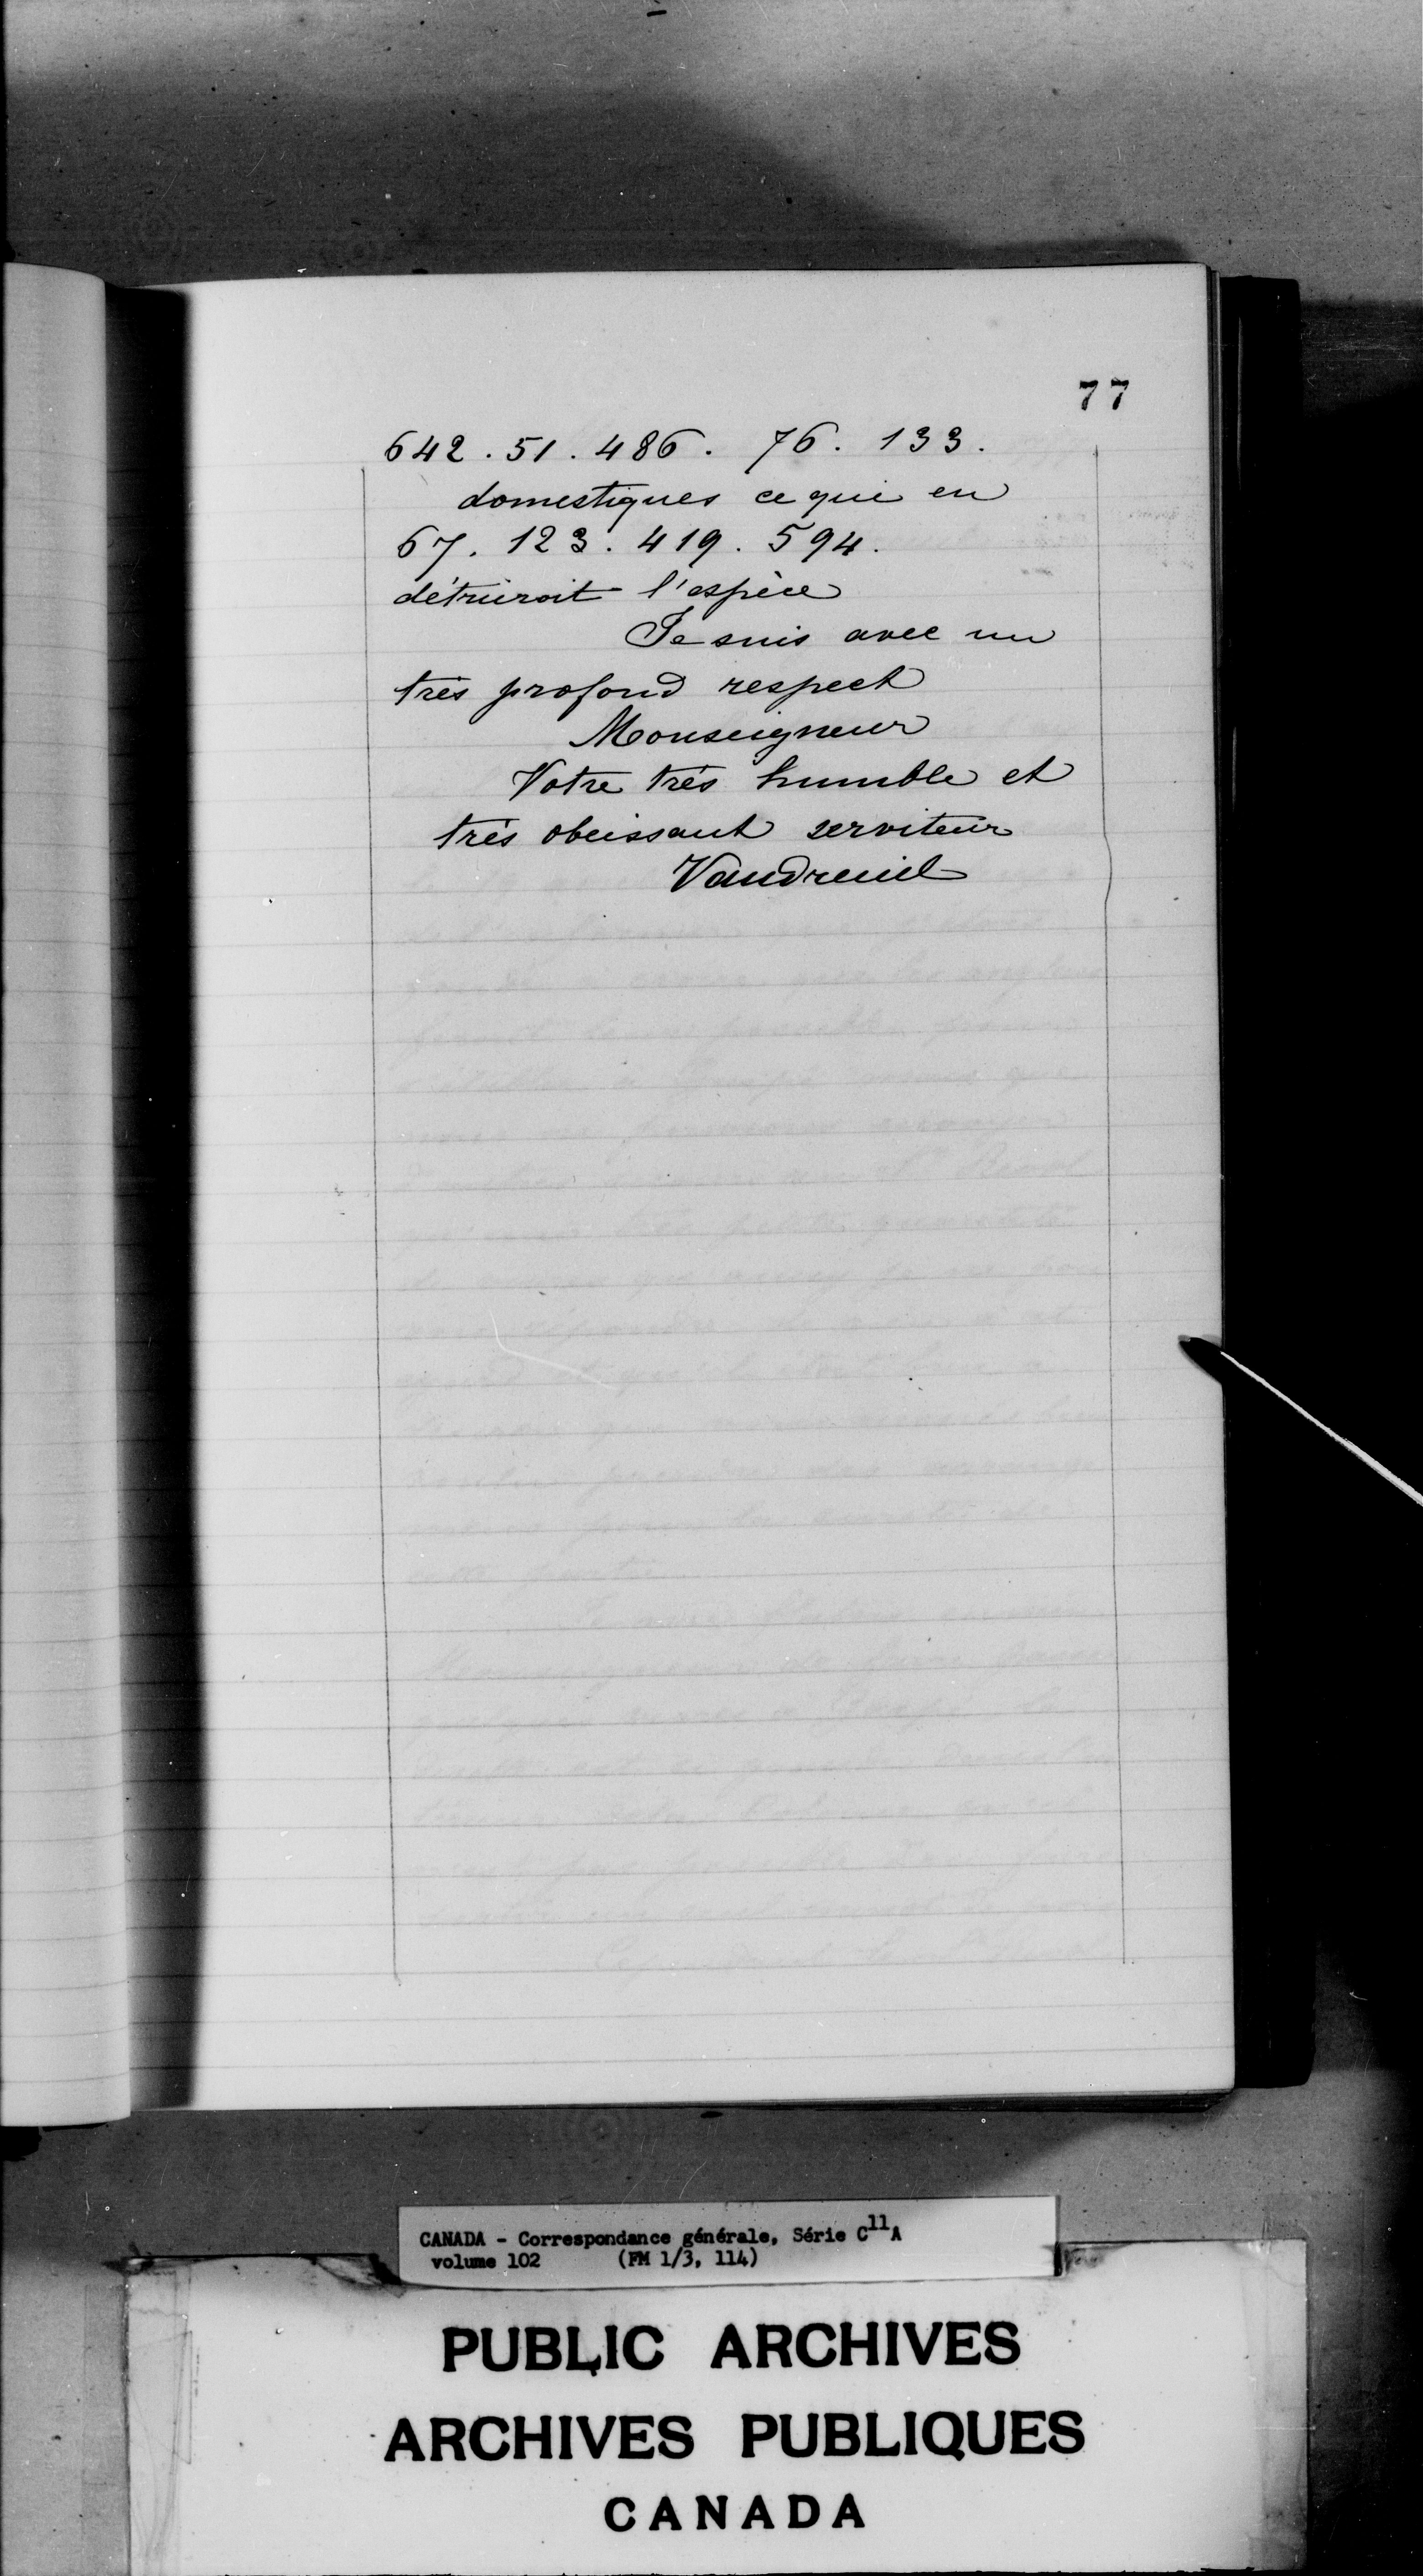 77
642 . 51 . 486 . 76 . 133 .
domestiques ce qui en
67 . 123 . 419 . 594 .
détruiroit l'espèce
Je suis avec un
très profond respect
Monseigneur
Votre très humble et
très obeissant serviteur
Vaudreuil
CANADA - Correspondance générale, Série C11A
volume 102 (FM 1/3, 114)
PUBLIC ARCHIVES
ARCHIVES PUBLIQUES
CANADA